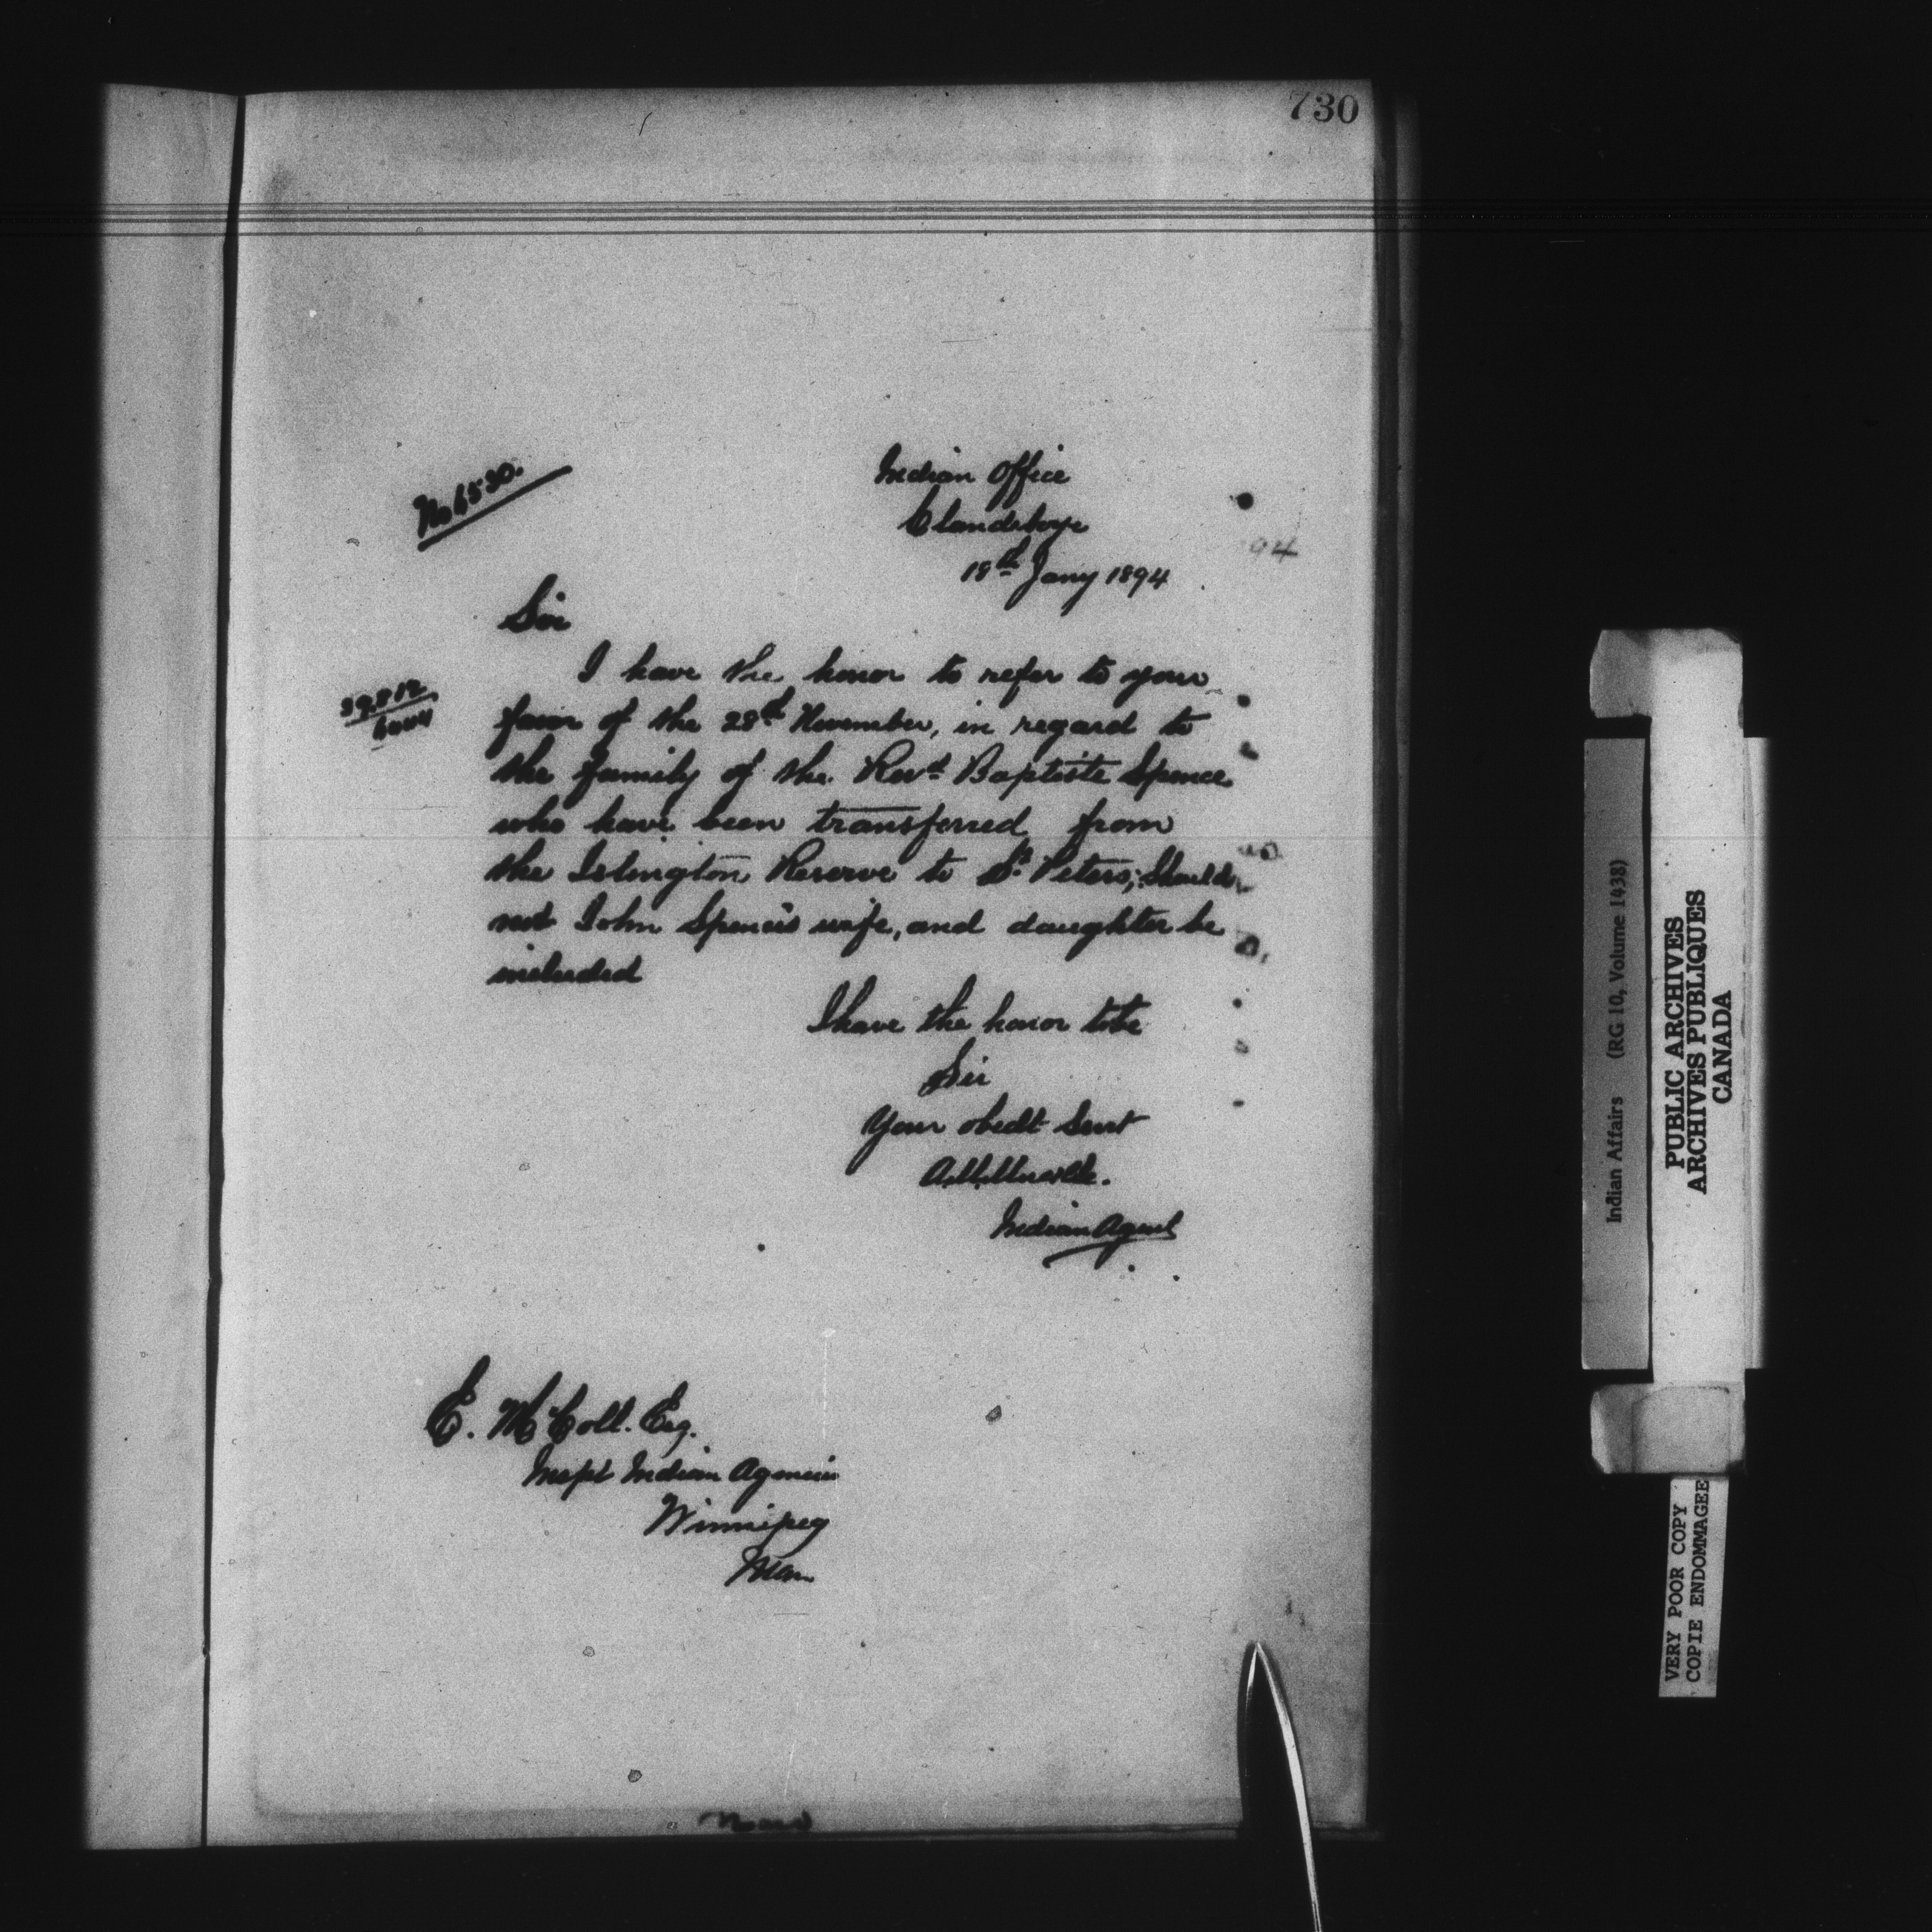 730
No 6530.
Indian Office
Clandeboye
18th Jany 1894
94
Sir
I have the honor to refer to your
favor of the 28th November, in regard to
the family of the Revd Baptiste Spence
who have been transferred from
the Islington Reserve to St Peters; Should
not John Spence's wife, and daughter be
included
I have the honor to be
Sir
Your obedt Servt
Indian Agent
E. McColl. Esq.
Inspt Indian Agencies
Winnipeg
Man
Indian Affairs (RG 10, Volume 1438)
PUBLIC ARCHIVES
ARCHIVES PUBLIQUES
CANADA
VERY POOR COPY
COPIE ENDOMMAGEE